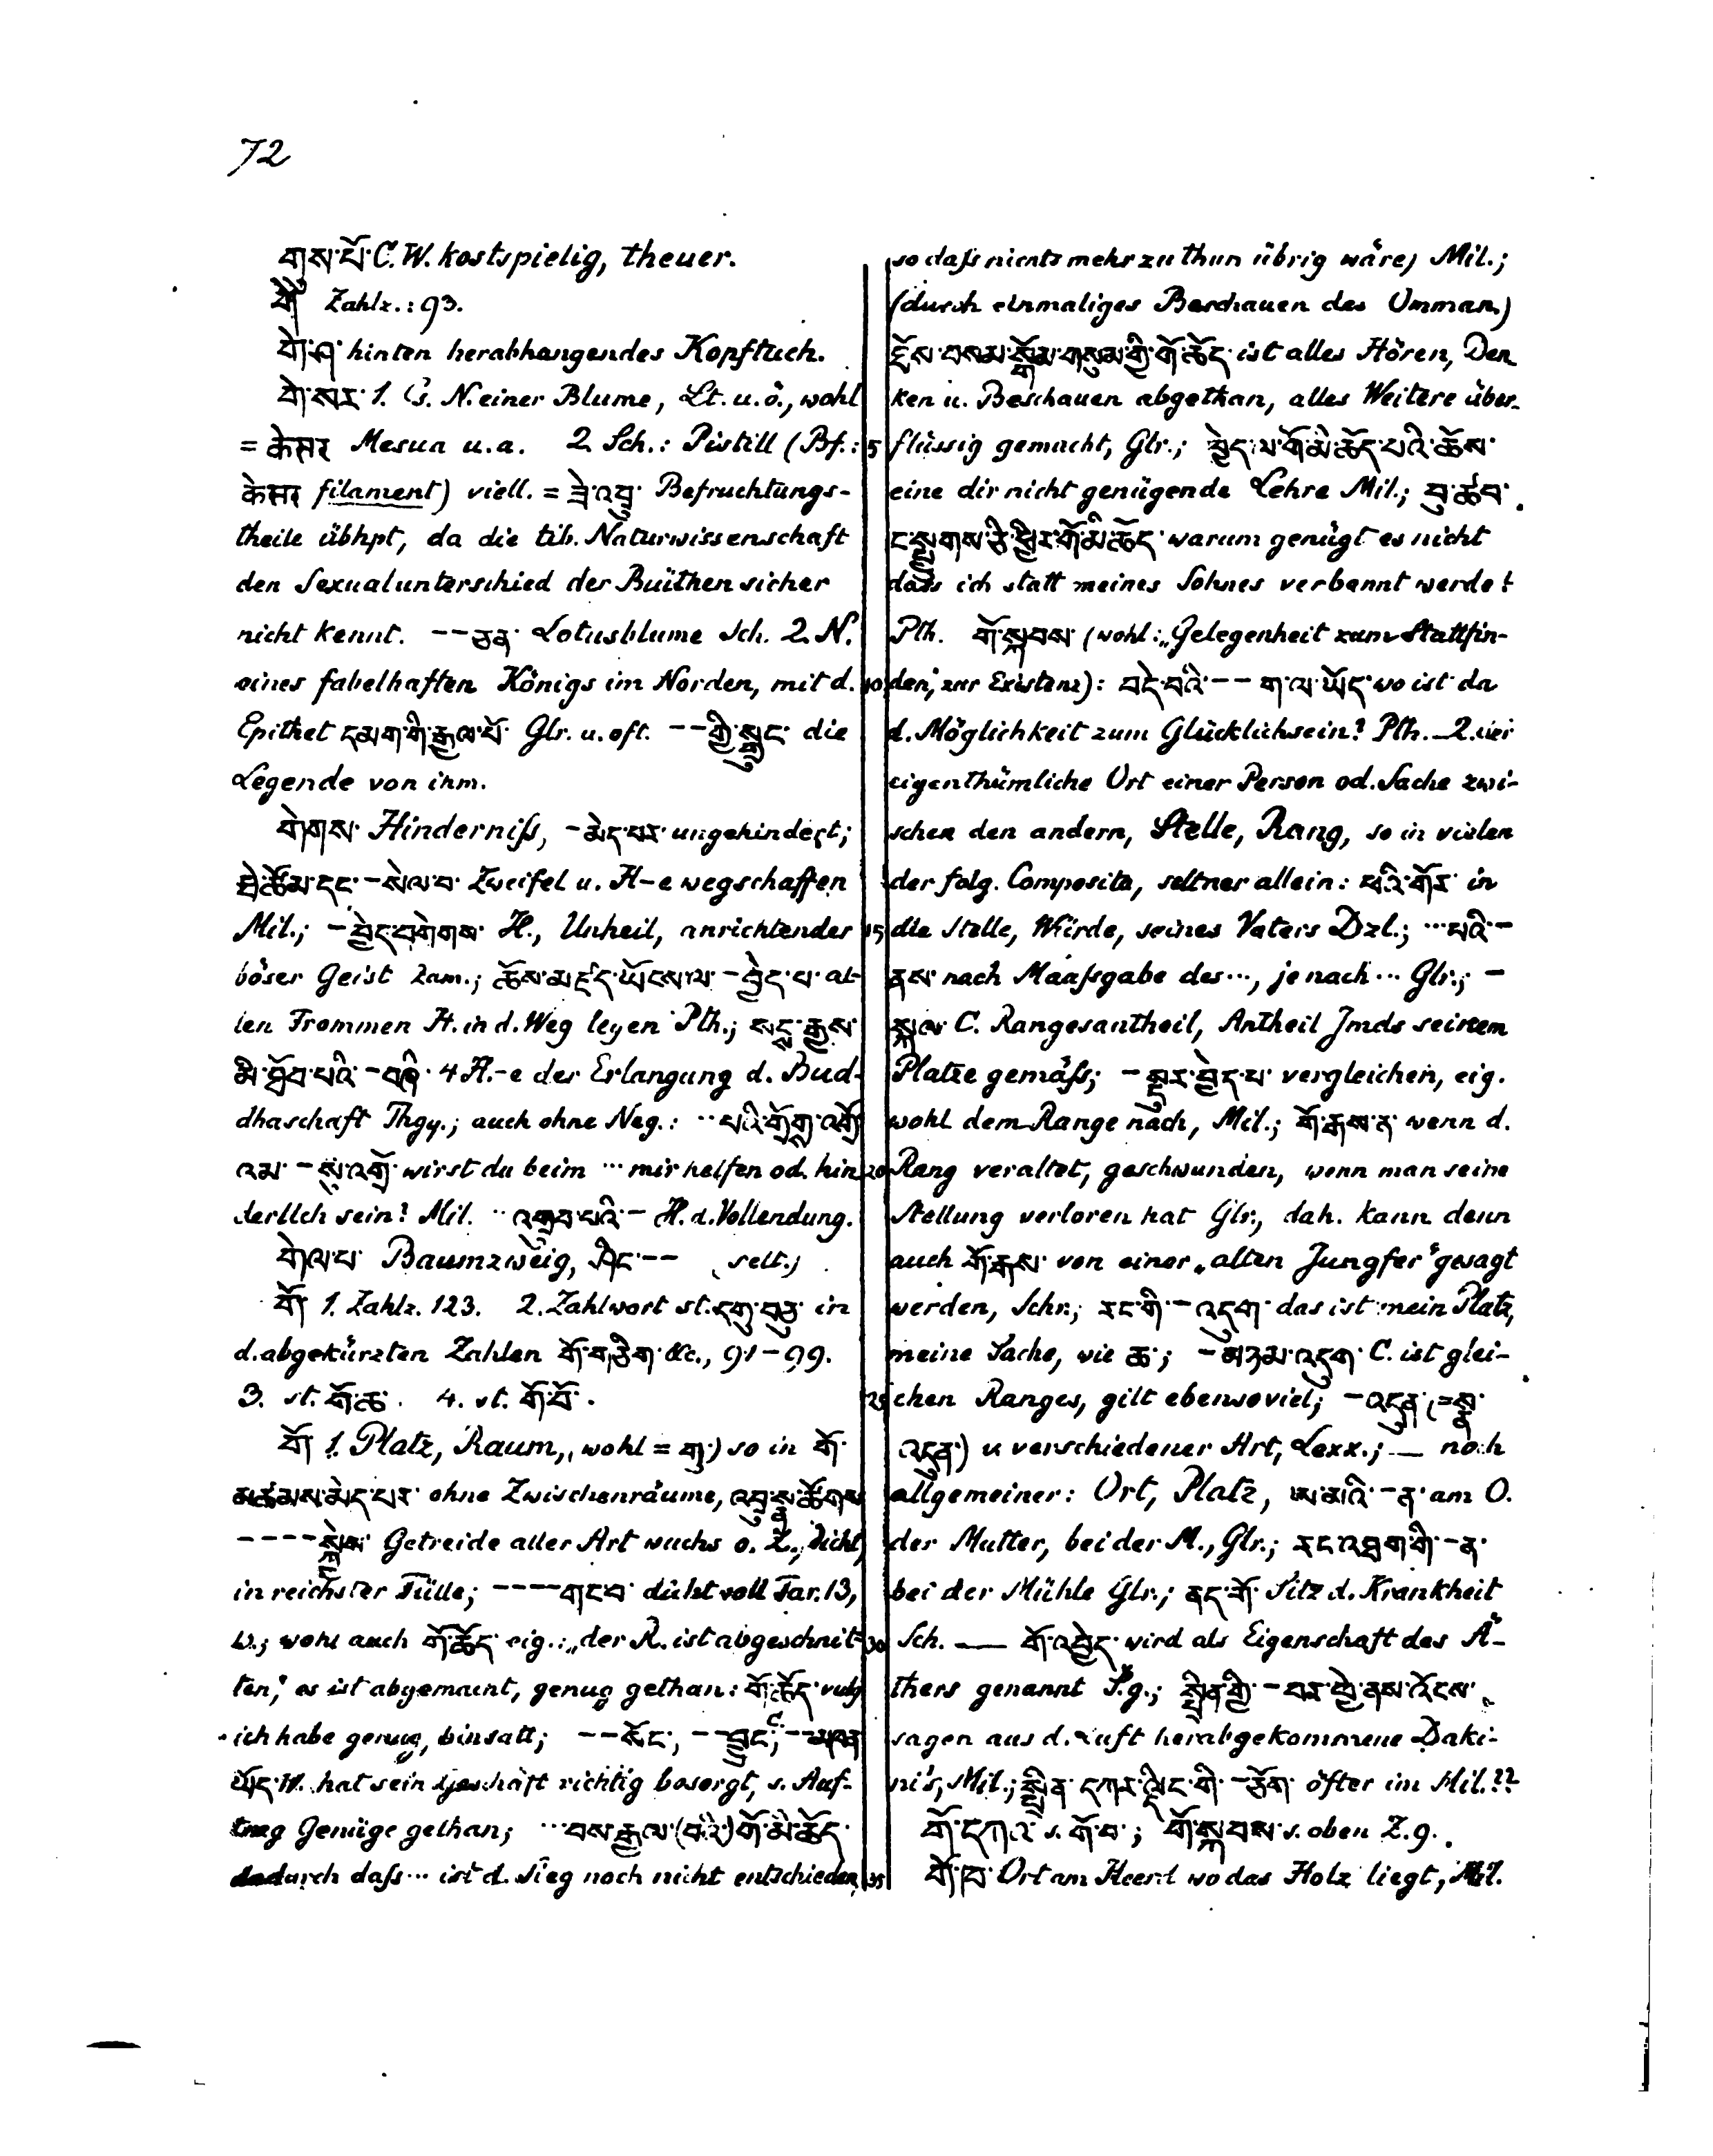 72
གུས་པོ་ C. W. kostspielig, theuer.
གེ Zahlz.: 93.
གེ་ཤ་ hinten herabhangendes Kopftuch.
གེ་སར་ 1. S. N. einer Blume, Lt. u. ö., wohl
= केसर Mesua u. a. 2 Sch.: Pistill (Bf.:
केसर filament) viell. = ཟེ་འབྲུ་ Befruchtungs-
theile übhpt, da die tib. Naturwissenschaft
den Sexualunterschied der Blüthen sicher
nicht kennt. --ཅན་ Lotusblume Sch. 2. N.
eines fabelhaften Königs im Norden, mit d.
Epithet དམག་གི་རྒྱལ་པོ་ Glr. u. oft. --གྱི་སྒྲུང་ die
Legende von ihm.
གེགས་ Hinderniß, -མེད་པར་ ungehindert;
ཐེ་ཚོམ་དང་-སེལ་བ་ Zweifel u. H-e wegschaffen
Mil.; -བྱེད་བགེགས་ H., Unheil, anrichtender
böser Geist Zam.; ཆོས་མཛད་ཡོངས་ལ་-བྱེད་པ་ al-
len Frommen H. in d. Weg legen Pth.; སངྶ་རྒྱས་
མི་ཐོབ་པའི་-བཞི་ 4 H.-e der Erlangung d. Bud-
dhaschaft Thgy.; auch ohne Neg.: ··པའི་གྲོགས་འགྲོ
འམ་-སུ་འགྲོ་ wirst du beim ··· mir helfen od. hin
derlich sein? Mil. ··འགྲུབ་པའི་- H. d. Vollendung.
གེལ་པ་ Baumzweig, ཤིང་-- (selt.)
གོ 1. Zahlz. 123. 2. Zahlwort st. དགུ་བཅུ་ in
d. abgekürzten Zahlen གོ་གཅིག་ &c., 91-99.
3. st. གོ་ཆ་. 4. st. གོ་བོ་.
གོ 1. Platz, Raum, (wohl = གུ་) so in གོ་
མཚམས་མེད་པར་ ohne Zwischenräume, འབྲུ་སྣ་ཚོགས
----སྐྱེས་ Getreide aller Art wuchs o. Z., dicht,
in reichster Fülle; ----གང་བ་ dicht voll Tar. 13,
W.; wohl auch གོ་ཆོད་ eig.: „der R. ist abgeschnit-
ten,“ es ist abgemacht, genug gethan: གོ་ཆོད་ vulg
ich habe genug, bin satt; --སོང་, --བྱུང་ C., --མཁན
ཡོད་ W. hat sein Geschäft richtig besorgt, s. Auf-
trag Genüge gethan; ···བས་རྒྱལ་(བའི་)གོ་མི་ཆོད་
dadurch daß ··· ist d. Sieg noch nicht entschieden,
so daß nichts mehr zu thun übrig wäre) Mil.;
(durch einmaliges Beschauen des Omman.)
ཐོས་བསམ་སྒོམ་གསུམ་གྱི་གོ་ཆོད་ ist alles Hören, Den
ken u. Beschauen abgethan, alles Weitere über-
5 flüssig gemacht, Glr.; བྱེད་ལ་གོ་མི་ཆོད་པའི་ཆོས་
eine dir nicht genügende Lehre Mil.; བུ་ཚབ་
ང་སྤྱུགས་ཅི་ཕྱིར་གོ་མི་ཆོད་ warum genügt es nicht
daß ich statt meines Sohnes verbannt werde?
Pth. གོ་སྐབས་ (wohl: „Gelegenheit zum Stattfin-
10 den,“ zur Existenz): བདེ་བའི་--ག་ལ་ཡོད་ wo ist da
d. Möglichkeit zum Glücklichsein? Pth. — 2. der
eigenthümliche Ort einer Person od. Sache zwi-
schen den andern, Stelle, Rang, so in vielen
der folg. Composita, seltner allein: ཕའི་གོར་ in
15 die Stelle, Würde, seines Vaters Dzl.; ···པའི་-
ནས་ nach Maaßgabe des ···, je nach ··· Glr.; -
སྐལ་ C. Rangesantheil, Antheil Jmds seinem
Platze gemäß; -སྡུར་བྱེད་པ་ vergleichen, eig.
wohl dem Range nach, Mil.; གོ་རྒས་ན་ wenn d.
20 Rang veraltet, geschwunden, wenn man seine
Stellung verloren hat Glr., dah. kann denn
auch གོ་རྒས་ von einer „alten Jungfer“ gesagt
werden, Schr.; རང་གི་-འདུག་ das ist mein Platz,
meine Sache, wie ཆ་; -མཉམ་འདུག་ C. ist glei-
25 chen Ranges, gilt ebensoviel; -འདུན་ (= སྣ་
འདུན་) u verschiedener Art, Lexx.; — noch
allgemeiner: Ort, Platz, ཨ་མའི་-ན་ am O.
der Mutter, bei der M., Glr.; རང་འཐག་གི་-ན་
bei der Mühle Glr.; ནད་གོ་ Sitz d. Krankheit
30 Sch. — གོ་འབྱེད་ wird als Eigenschaft des Ä-
thers genannt S.g.; སྤྲིན་གྱི་-བར་བྱེ་ནས་འོངས་
sagen aus d. Luft herabgekommene Daki-
ni's, Mil.; སྤྲིན་དཀར་ལྡིང་གི་-ཅོག་ öfter im Mil.??
གོ་དཀའ་ s. གོ་བ་; གོ་སྐབས་ s. oben Z. 9.
35 གོ་ཁ་ Ort am Heerd wo das Holz liegt, Mil.